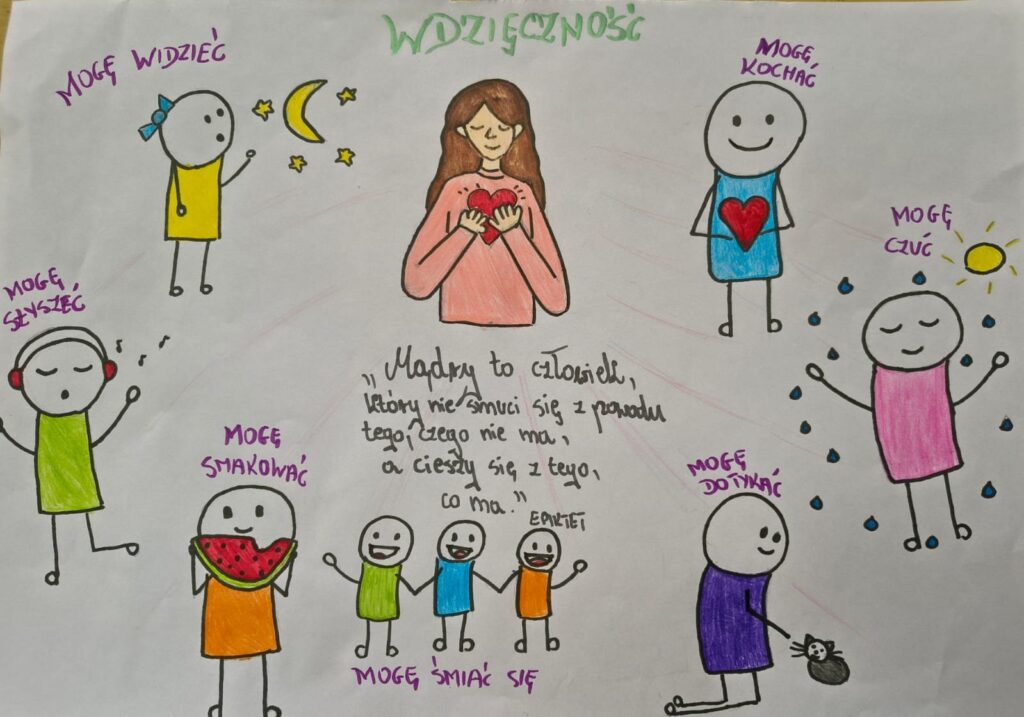 WDZIĘCZNOŚĆ
MOGĘ WIDZIEĆ
MOGĘ
KOCHAĆ
MOGĘ
CZUĆ
MOGĘ
SŁYSZEĆ
„Mądry to człowiek,
który nie smuci się z powodu
tego, czego nie ma,
a cieszy się z tego,
co ma."
EPIKTET
MOGĘ
SMAKOWAĆ
MOGĘ
DOTYKAĆ
MOGĘ ŚMIAĆ SIĘ